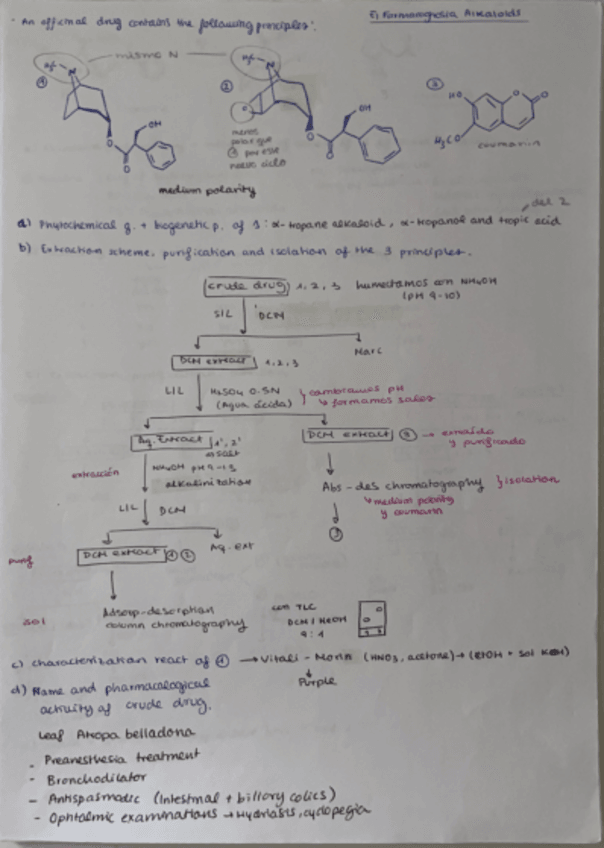 E) Farmacognosia Alkaloids
- An official drug contains the following principles:
mismo N
N
N
①
②
③
OH
OH
HO
O
O
O
O
O
O
O
O
H₃CO
menos
polar que
① por este
nuevo ciclo
coumarin
medium polarity
del 2
a) Phytochemical g. + biogenetic p. of 1: α-tropane alkaloid, α-tropanol and tropic acid
b) Extraction scheme, purification and isolation of the 3 principles.
crude drug 1, 2, 3 humectamos con NH₄OH
(pH 9-10)
S/L DCM
DCM extract 1, 2, 3
Marc
L/L H₂SO₄ 0.5N
(Agua ácida)
cambiamos pH
↳ formamos sales
Aq. Extract 1', 2'
as salt
DCM extract ③ → extraído
y purificado
extracción
NH₄OH pH 9-
alkalinization
Abs-des chromatography } isolation
↳ medium polarity
y coumarin
L/L DCM
③
purif
DCM extract ① ②
Aq. ext
isol
Adsorp-desorption
column chromatography
con TLC
DCM / MeOH
9 : 1
c) Characterization react of ① → Vitali-Morin (HNO₃, acetone) → (EtOH + sol KOH)
↓
Purple
d) Name and pharmacological
activity of crude drug.
Leaf Atropa belladona
- Preanesthesia treatment
- Bronchodilator
- Antispasmodic (Intestinal + billiary colics)
- Ophtalmic examinations → Mydriasis, cyclopegia